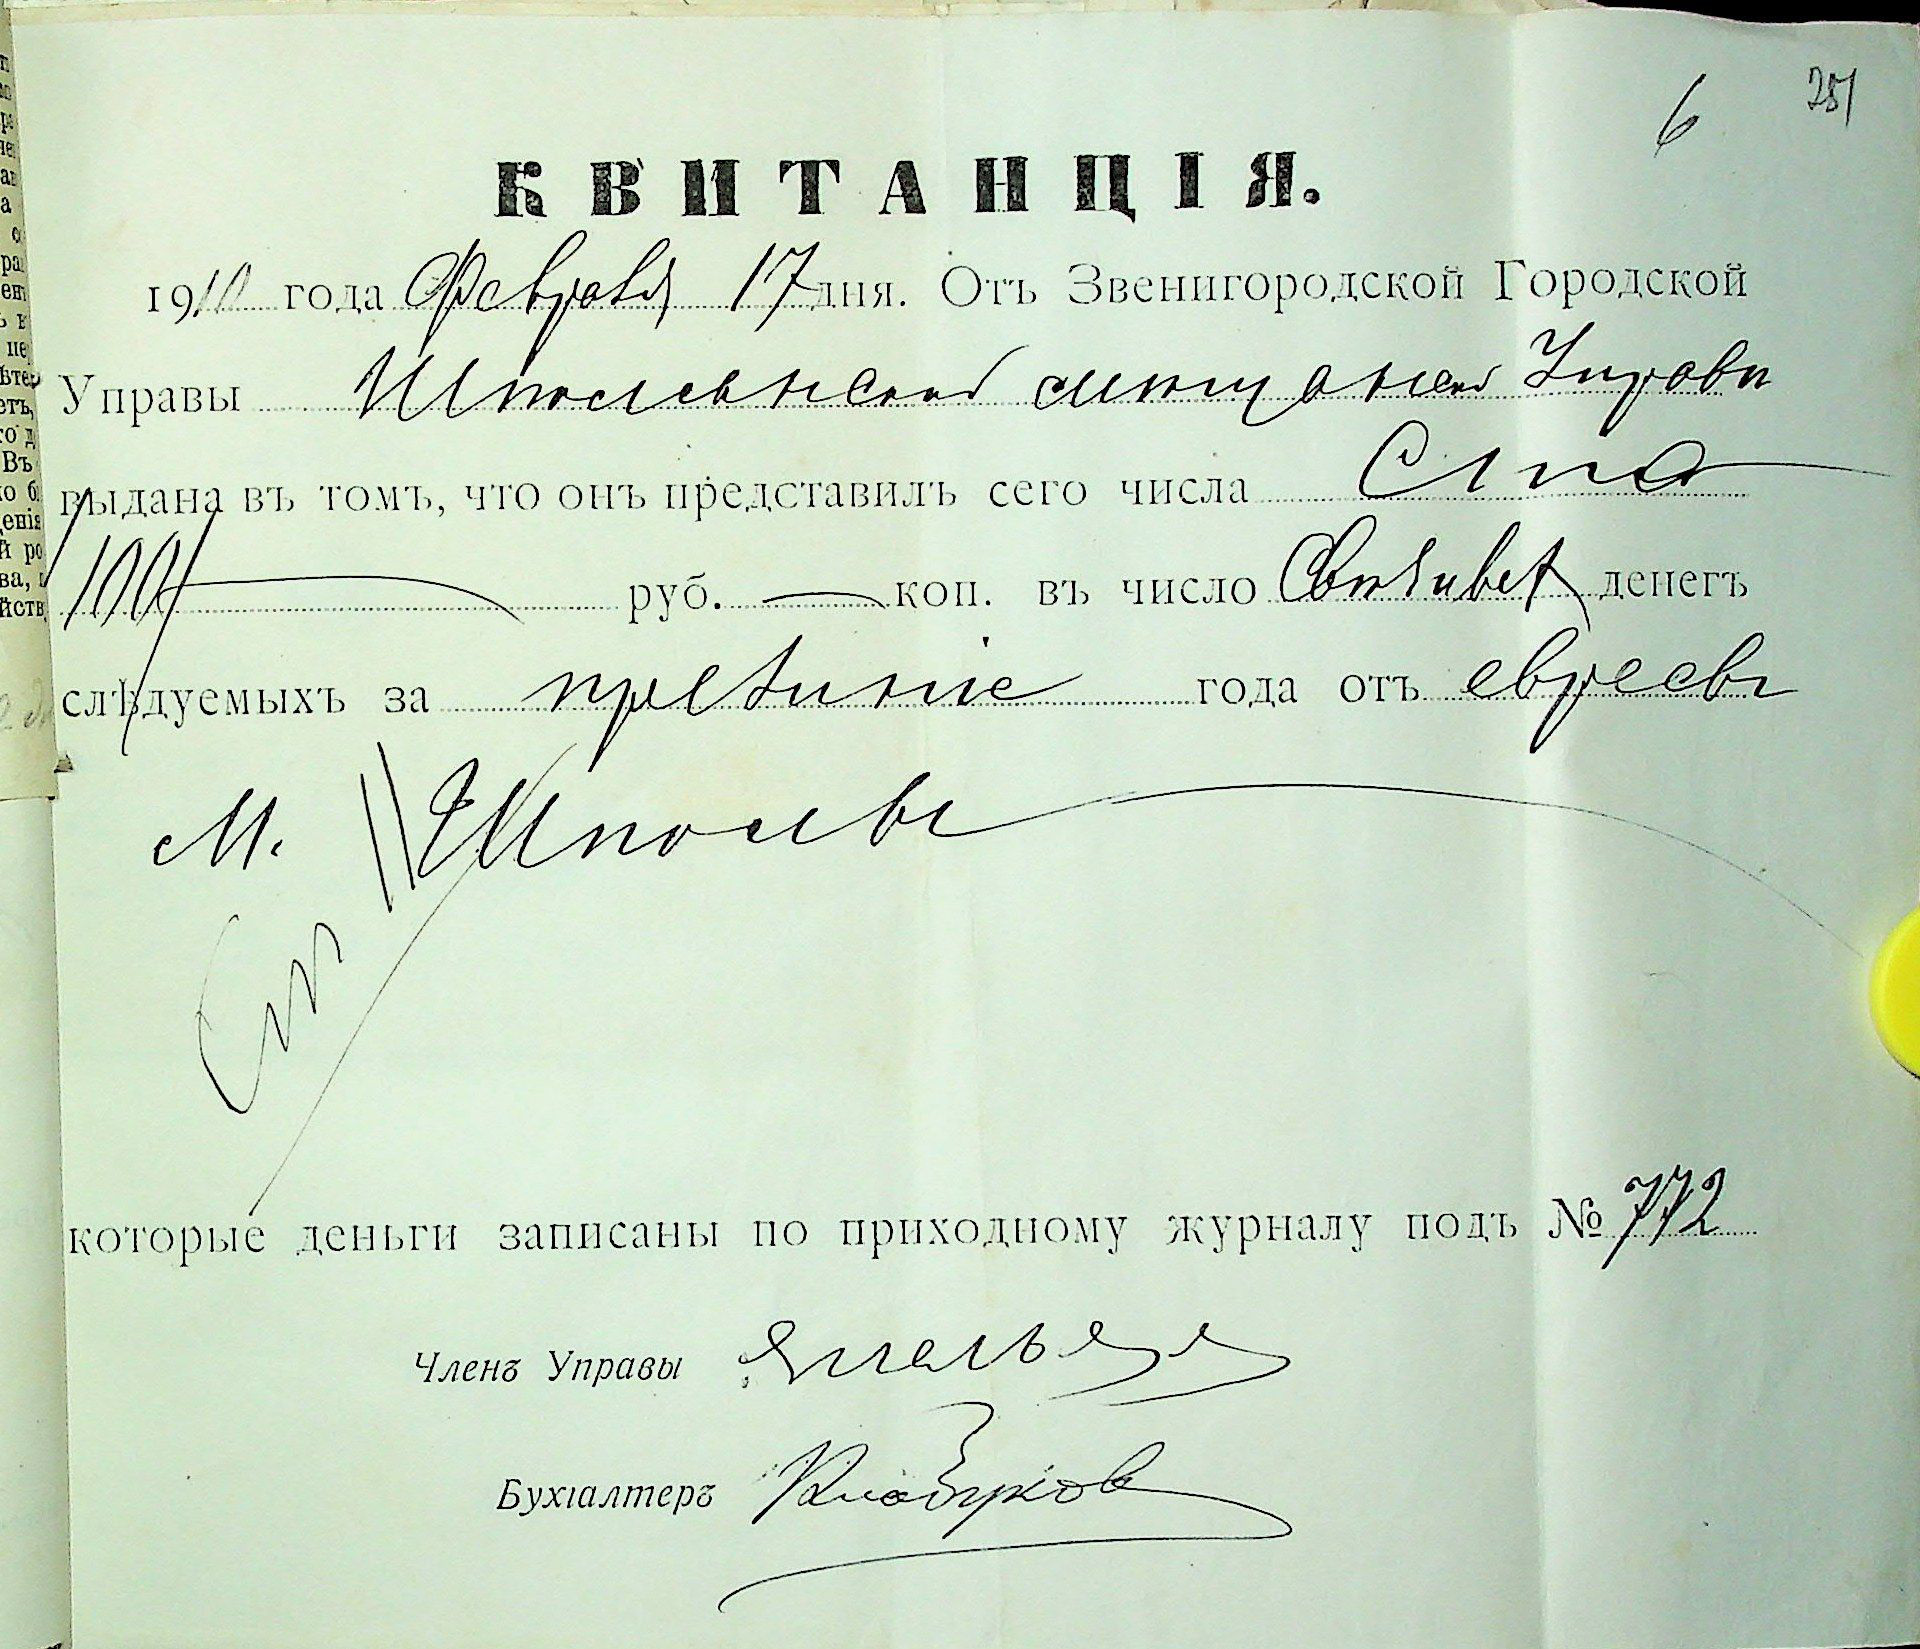 6 251
КВИТАНЦІЯ.
1910 года Февраля 17 дня. Отъ Звенигородской Городской
Управы Шполянской мѣщанской Управы
выдана въ томъ, что онъ представилъ сего числа Сто
100 руб. — коп. въ число денегъ
слѣдуемыхъ за года отъ евреевъ
м. Шполы
которые деньги записаны по приходному журналу подъ № 772
Членъ Управы
Бухгалтеръ